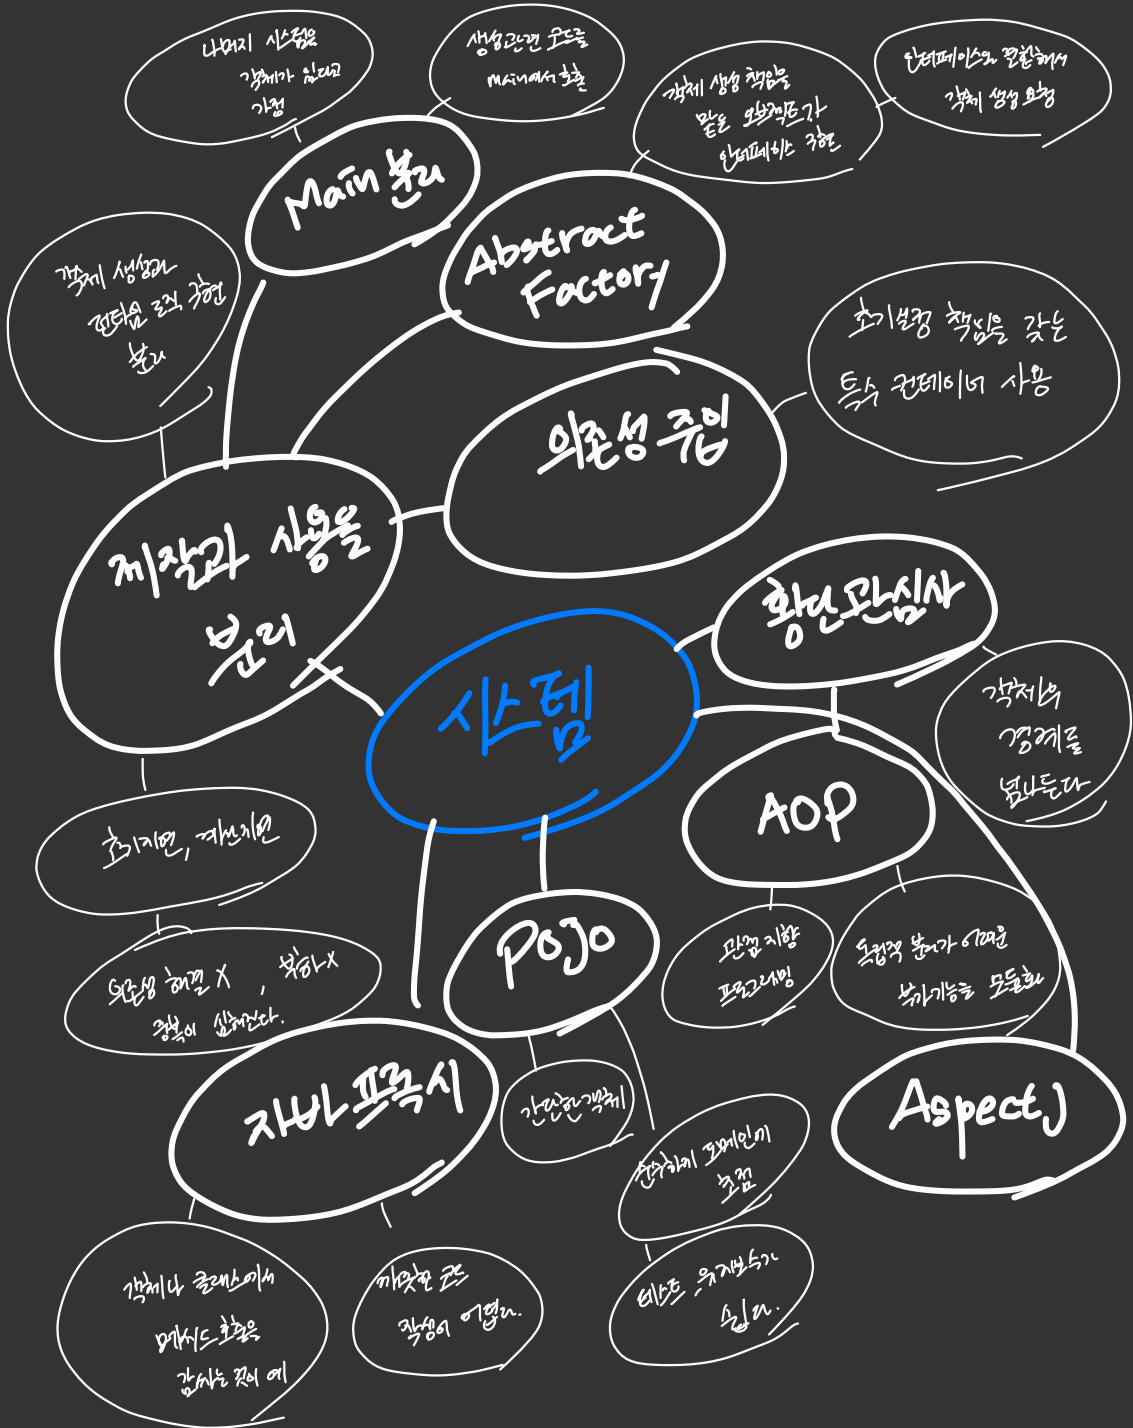 나머지 시스템은
객체가 있다고
가정
생성관련 코드를
main에서 호출
객체 생성 책임을
맡는 오브젝트가
인터페이스 구현
인터페이스와 결합해서
객체 생성 요청
Main 분리
Abstract
Factory
객체 생성과
런타임 로직 구현
분리
초기설정 책임을 갖는
특수 컨테이너 사용
의존성 주입
제작과 사용을
분리
횡단관심사
시스템
객체의
경계를
넘나든다
AOP
초기지연, 계산지연
POJO
관점 지향
프로그래밍
독립적 분리가 어려운
부가기능을 모듈화
의존성 해결 X,
중복이 심해진다.
자바 프록시
간단한 객체
AspectJ
순수하게 도메인에
초점
객체나 클래스에서
메서드 호출을
감싸는 것이 예
깨끗한 코드
작성이 어렵다.
테스트, 유지보수가
쉽다.